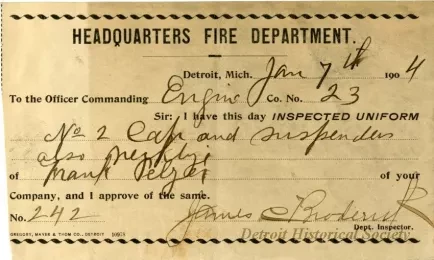 HEADQUARTERS FIRE DEPARTMENT.
Detroit, Mich. Jan 7th 1904
To the Officer Commanding Engine Co. No. 23
Sir: I have this day INSPECTED UNIFORM
No 2 Cap and suspenders
also
of Frank of your
Company, and I approve of the same.
No. 242 James C Broderick
Dept. Inspector.
GREGORY, MAYER & THOM CO., DETROIT
Detroit Historical Society